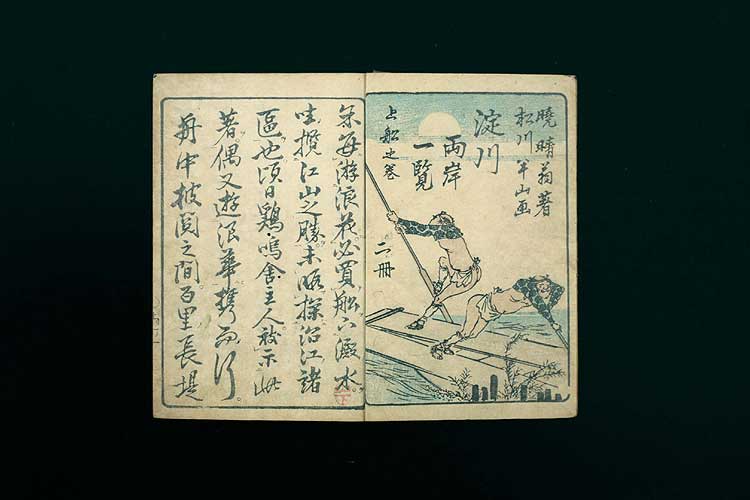 暁晴翁著
松川半山画
淀川
両岸
一覧
上船之巻
二冊
余毎游浪花必買船下澱水
時攬江山之勝未嘗探沿江諸
區也頃日鶏鳴舎主人被示此
著偶又遊浪華携而行
舟中披閲之間百里長堤